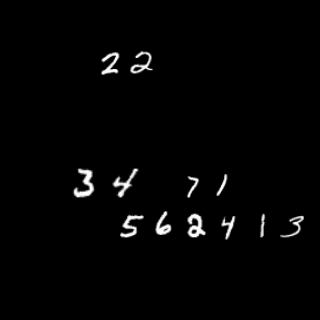 22
34 71
562413